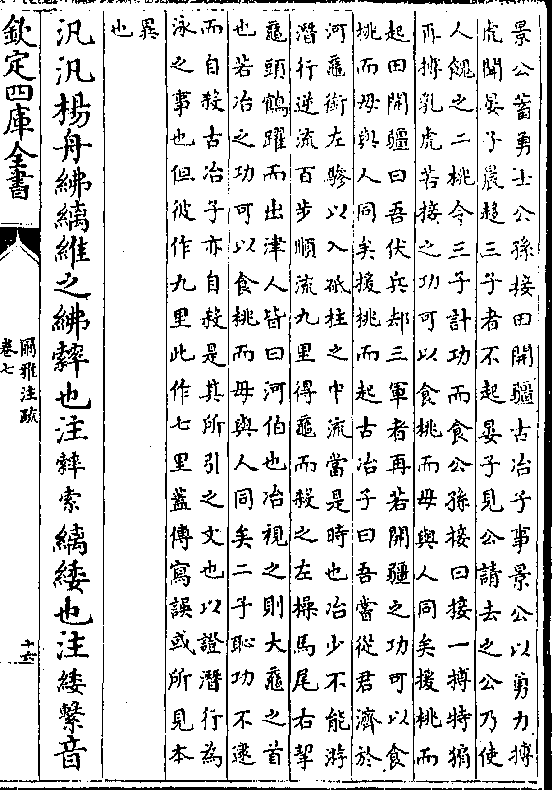 景公蓄勇士公孫接田開疆古冶子事景公以勇力搏
虎聞晏子晨趨三子者不起晏子見公請去之公乃使
人餽之二桃令三子計功而食公孫接曰接一搏特猏
再搏乳虎若接之功可以食桃而毋與人同矣援桃而
起田開疆曰吾伏兵却三軍者再若開疆之功可以食
桃而毋與人同矣援桃而起古冶子曰吾嘗從君濟於
河黿銜左驂以入砥柱之中流當是時也冶少不能游
潛行逆流百步順流九里得黿而殺之左操馬尾右挈
黿頭鶴躍而出津人皆曰河伯也冶視之則大黿之首
也若冶之功可以食桃而毋與人同矣二子恥功不逮
而自殺古冶子亦自殺是其所引之文也以證潛行為
泳之事也但彼作九里此作七里蓋傳寫誤或所見本
異
也
汎汎楊舟紼縭維之紼䋏也注䋏索縭緌也注緌繫音
欽定四庫全書
爾雅注疏
卷七
十六